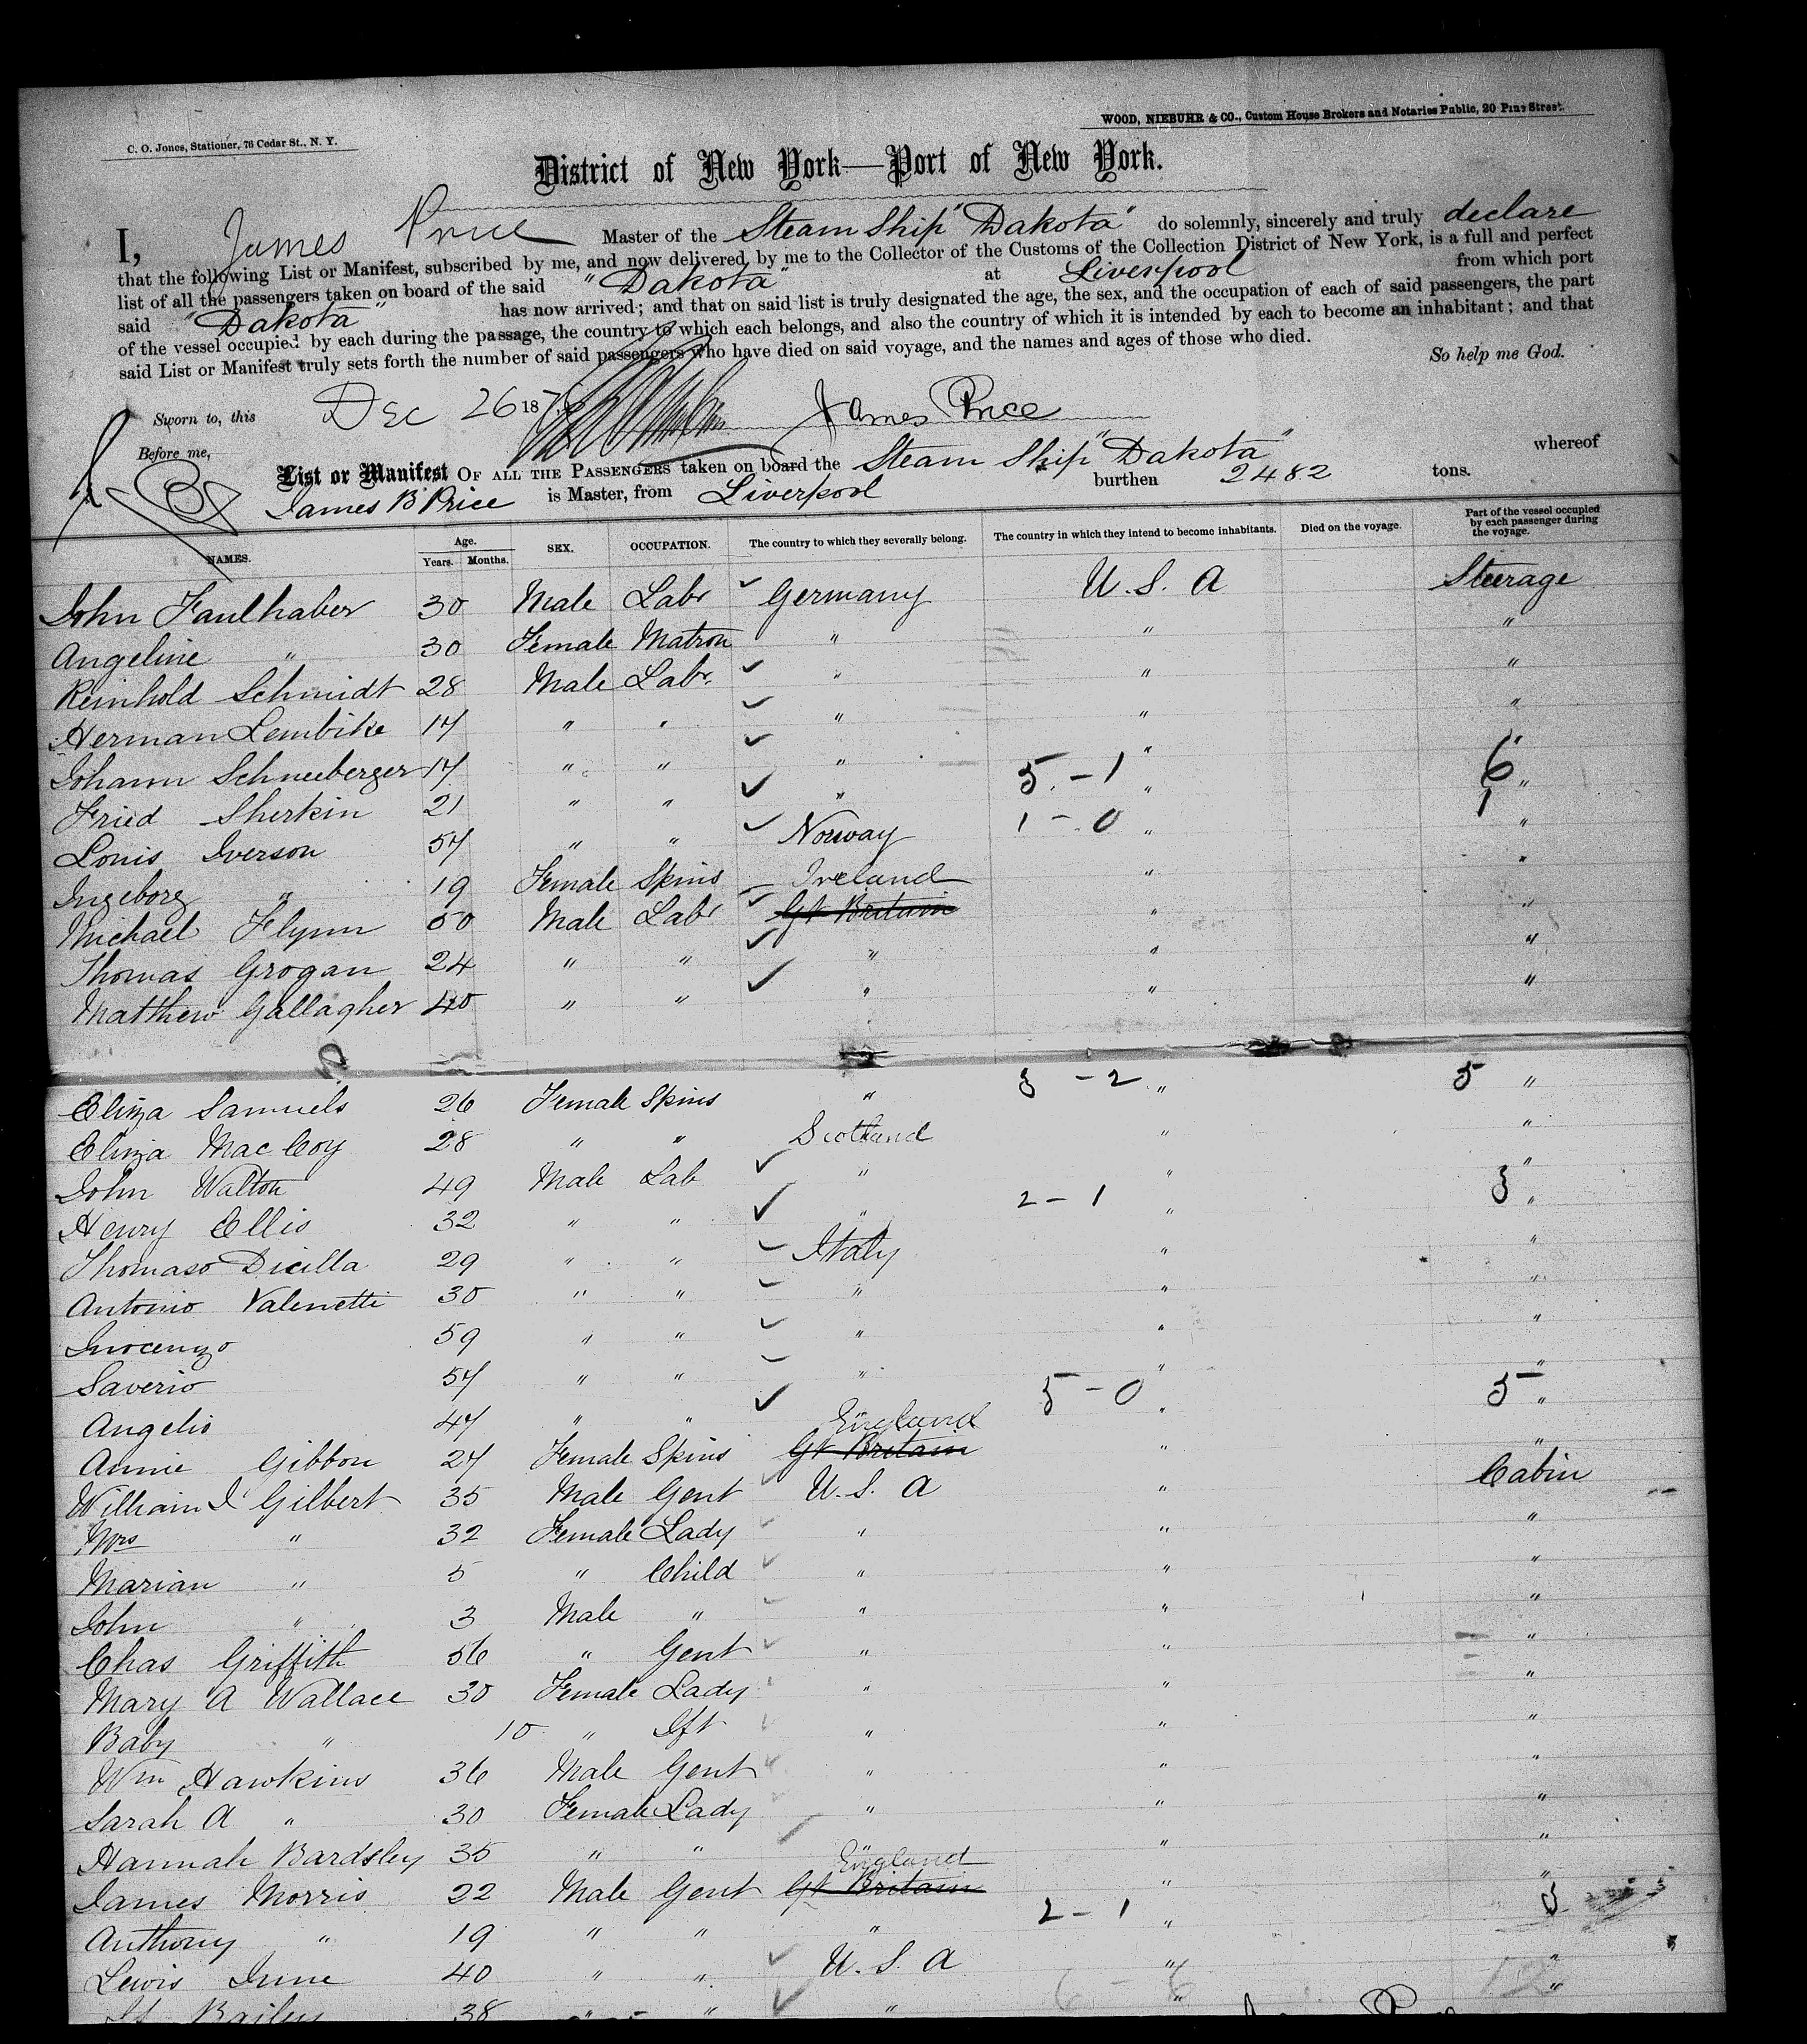 WOOD, NIEBUHR & CO., Custom House Brokers and Notaries Public, 20 Pine Street.
C. O. Jones, Stationer, 76 Cedar St., N. Y.
District of New York—Port of New York.
I, James Price Master of the Steam Ship "Dakota" do solemnly, sincerely and truly declare
that the following List or Manifest, subscribed by me, and now delivered by me to the Collector of the Customs of the Collection District of New York, is a full and perfect
list of all the passengers taken on board of the said "Dakota" at Liverpool from which port
said "Dakota" has now arrived; and that on said list is truly designated the age, the sex, and the occupation of each of said passengers, the part
of the vessel occupied by each during the passage, the country to which each belongs, and also the country of which it is intended by each to become an inhabitant; and that
said List or Manifest truly sets forth the number of said passengers who have died on said voyage, and the names and ages of those who died.
So help me God.
Sworn to, this Dec 26 187 James Price
Before me,
List or Manifest OF ALL THE PASSENGERS taken on board the Steam Ship "Dakota" whereof
James B Price is Master, from Liverpool burthen 2482 tons.
NAMES. Age. Years. Months. SEX. OCCUPATION. The country to which they severally belong. The country in which they intend to become inhabitants. Died on the voyage. Part of the vessel occupied by each passenger during the voyage.
John Faulhaber 30 Male Labr Germany U. S. A Steerage
Angeline " 30 Female Matron " " "
Reinhold Schmidt 28 Male Labr. " " "
Herman Lembike 17 " " " " "
Johann Schneeberger 17 " " " " "
Fried Sherkin 21 " " " 5 - 1 " 6 "
Louis Iverson 57 " " Norway 1 - 0 " 1 "
Ingeborg " 19 Female Spins Ireland " "
Michael Flynn 50 Male Labr Gt Britain " "
Thomas Grogan 24 " " " " "
Matthew Gallagher 40 " " " " "
Eliza Samuels 26 Female Spins " 3 - 2 " 5 "
Eliza Mac Coy 28 " " Scotland " "
John Walton 49 Male Lab " " "
Henry Ellis 32 " " " 2 - 1 " 3 "
Thomaso Dicilla 29 " " Italy " "
Antonio Valenetti 30 " " " " "
Inocenzo 59 " " " " "
Saverio 57 " " " " "
Angelis 47 " " " 5 - 0 " 5 "
Annie Gibbon 24 Female Spins England Gt Britain " "
William I Gilbert 35 Male Gent U. S. A " Cabin
Mrs " 32 Female Lady " " "
Marian " 5 " Child " " "
John " 3 Male " " " "
Chas Griffith 56 " Gent " " "
Mary A Wallace 30 Female Lady " " "
Baby " 10 " Ift " " "
Wm Hawkins 36 Male Gent " " "
Sarah A " 30 Female Lady " " "
Hannah Bardsley 35 " " " "
James Morris 22 Male Gent England Gt Britain " "
Anthony " 19 " " " 2 - 1 " 3
Lewis 40 " " U. S. A " "
Bailey 38 " " " 6 - 6 " 12 "